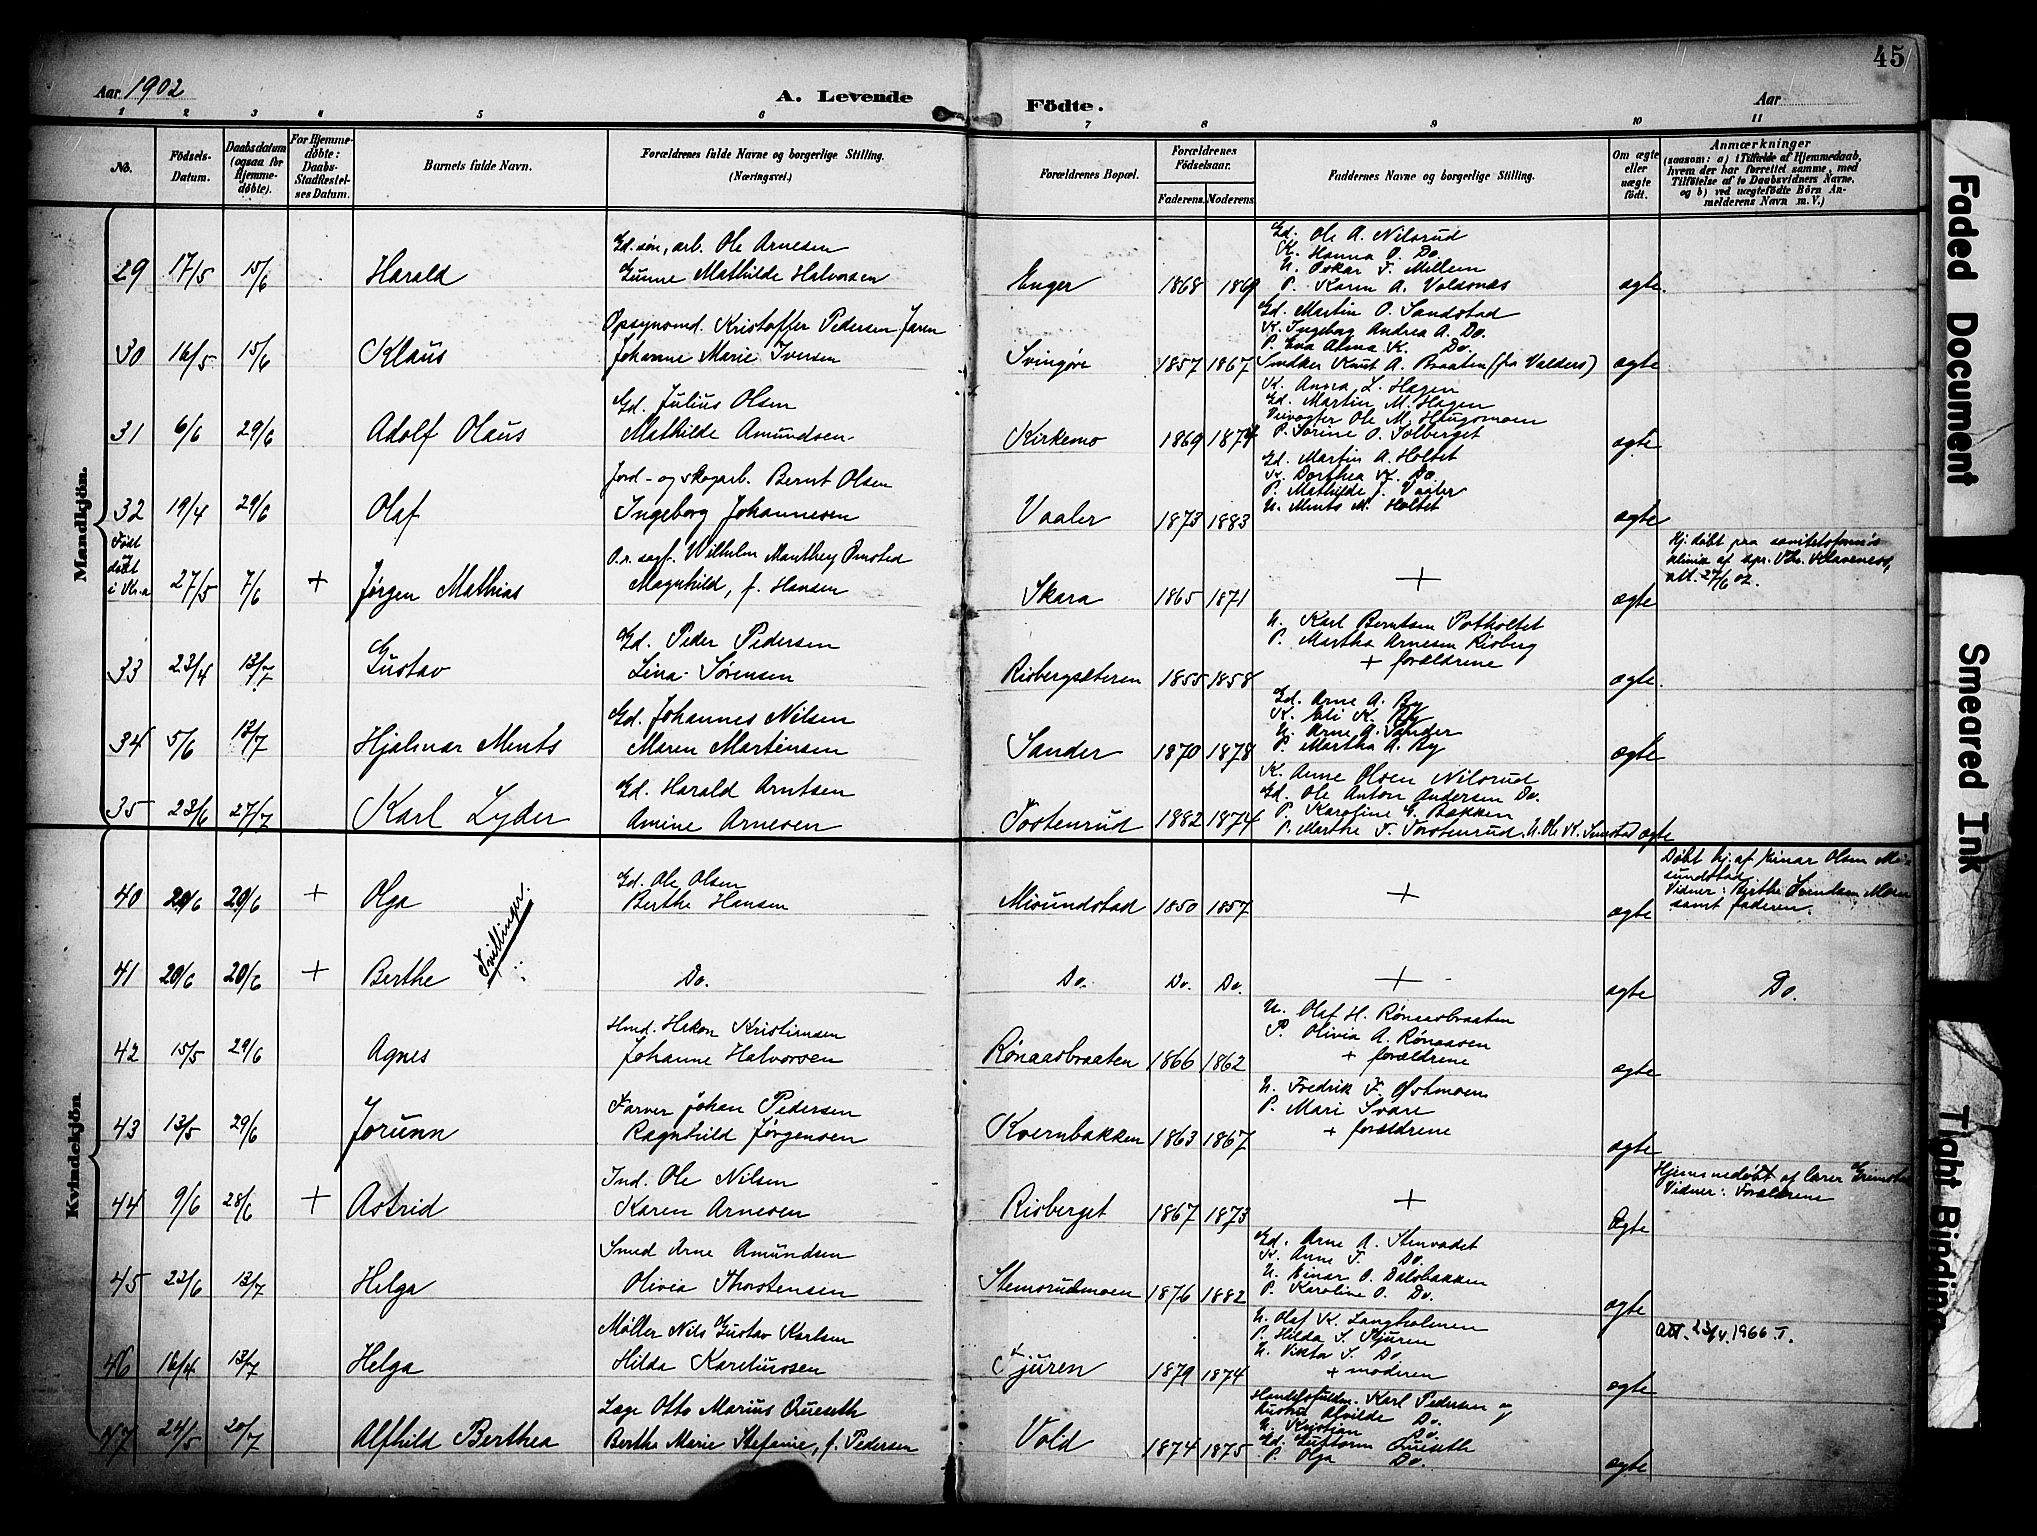 45
Aar 1902
A. Levende
Fødte.
Aar
1 2 3 4 5 6 7 8 9 10 11
No.
Födsels-Datum.
Daabsdatum (ogsaa for Hjemme-döbte).
For Hjemme-døbte: Daabs-Stadfæstel-ses Datum.
Barnets fulde Navn.
Forældrenes fulde Navne og borgerlige Stilling. (Næringsvei.)
Forældrenes Bopæl.
Forældrenes Födselsaar.
Faderens. Moderens.
Faddernes Navne og borgerlige Stilling.
Om ægte eller uægte födt.
Anmærkninger
(saasom: a) i Tilfælde af Hjemmedaab, hvem der har forrettet samme, med Tilföielse af to Daabsvidners Navne, og b) ved uægtefödte Börn Anmelderens Navn m. V.)
Mandkjön.
29 17/5 15/6 Harald
Gd.søn, arb. Ole Arnesen
Gunne Mathilde Halvorsen
Enger 1868 1869
Gd. Ole A. Nilsrud
K. Hanna O. Do.
U. Oskar F. Mellem
P. Karen A. Voldsnæs
ægte.
30 16/5 15/6 Klaus
Opsynsmd. Kristoffer Pedersen Jaren
Johanne Marie Iversen
Svingøre 1857 1867
Gd. Martin O. Sandstad
K. Ingeborg Andrea A. Do.
P. Eva Alma K. Do.
Smdker Knut A. Braaten (fra Valders)
ægte
31 6/6 29/6 Adolf Olaus
Gd. Julius Olsen
Mathilde Amundsen
Kirkemo 1869 1874
K. Anna L. Hagen
Gd. Martin M. Hagen
Veivogter Ole M. Haugsmoen
P. Sorine O. Solberget
ægte
32 19/4 29/6 Olaf
Jord- og skogarb. Bernt Olsen
Ingeborg Johannesen
Vaaler 1873 1883
Gd. Martin A. Holtet
K. Dorthea K. Do.
P. Mathilde J. Vaaler
U. Ments M. Holtet
ægte
Født og døbt i Kr.a 27/5 7/6 + Jørgen Mathias
O.r. sagf. Wilhelm Manthey Ømsted
Magnhild, f. Hansen
Skara 1865 1871
+
ægte
Hj. døbt paa sanitetsforen.s
klinik af spr. Chr. Klaveness,
att. 27/6 02.
33 23/4 13/7 Gustav
Gd. Peder Pedersen
Lina Sørensen
Risbergsæteren 1855 1858
U. Karl Berntsen Potholtet
P. Martha Arnesen Risberg
+ forældrene
ægte.
34 5/6 13/7 Hjalmar Ments
Gd. Johannes Nilsen
Maren Martinsen
Sander 1870 1878
Gd. Arne A. By
K. Eli K. By
U. Arne A. Sander
P. Martha A. By
ægte
35 23/6 27/7 Karl Lyder
Gd. Harald Arntsen
Amine Arnesen
Tostenrud 1882 1874
K. Anne Olsen Nilsrud
Gd. Ole Anton Andersen Do.
P. Karoline G. Bakken
P. Marthe F. Torstenrud. U. Ole K. Smstad
ægte
Kvindekjön.
40 20/6 20/6 + Olga
Tvillinger.
Gd. Ole Olsen
Berthe Hansen
Misundstad 1850 1857
+
ægte
Døbt hj. af Einar Olsen Mi-
sundstad.
Vidner: Berthe Svendsen Moen
samt faderen.
41 20/6 20/6 + Berthe
Do.
Do. Do. Do.
+
ægte
Do.
42 15/5 29/6 Agnes
Hmd. Hakon Kristiansen
Johanne Halvorsen
Rønaasbraaten 1866 1862
U. Olaf H. Rønaasbraaten
P. Olivia A. Rønaasen
+ forældrene
ægte
43 13/5 29/6 Jorunn
Farver Johan Pedersen
Ragnhild Jørgensen
Kvernbakken 1863 1867
U. Fredrik F. Østmoen
P. Mari Svare
+ forældrene
ægte
44 9/6 28/6 + Astrid
Ind. Ole Nilsen
Karen Arnesen
Risberget 1867 1873
+
Ægte
Hjemmedøbt af lærer Grimstad
Vidner: Forældrene
45 22/6 13/7 Helga
Smed Arne Amundsen
Olivia Thorstensen
Stemsrudmoen 1876 1882
Gd. Arne A. Stenvadet
K. Anne F. Do.
U. Einar O. Dalsbakken
P. Karoline O. Do.
ægte
46 16/4 13/7 Helga
Møller Nils Gustav Karlsen
Hilda Kareliussen
Kjuren 1879 1874
U. Olaf K. Langholenen
P. Hilda S. Kjuren
U. Viktor S. Do
+ moderen
ægte
att. 23/V 1966 T.
47 24/5 20/7 Alfhild Berthea
Læge Otto Marius Quæseth
Berthe Marie Stefanie, f. Pedersen
Vold 1874 1875
Handelsfuldm. Karl Pedersen og
Hustru Alvilde Do.
U. Kristian Do.
Gd. Guttorm Quæseth
P. Olga Do.
ægte
Faded Document
Smeared Ink
Tight Binding